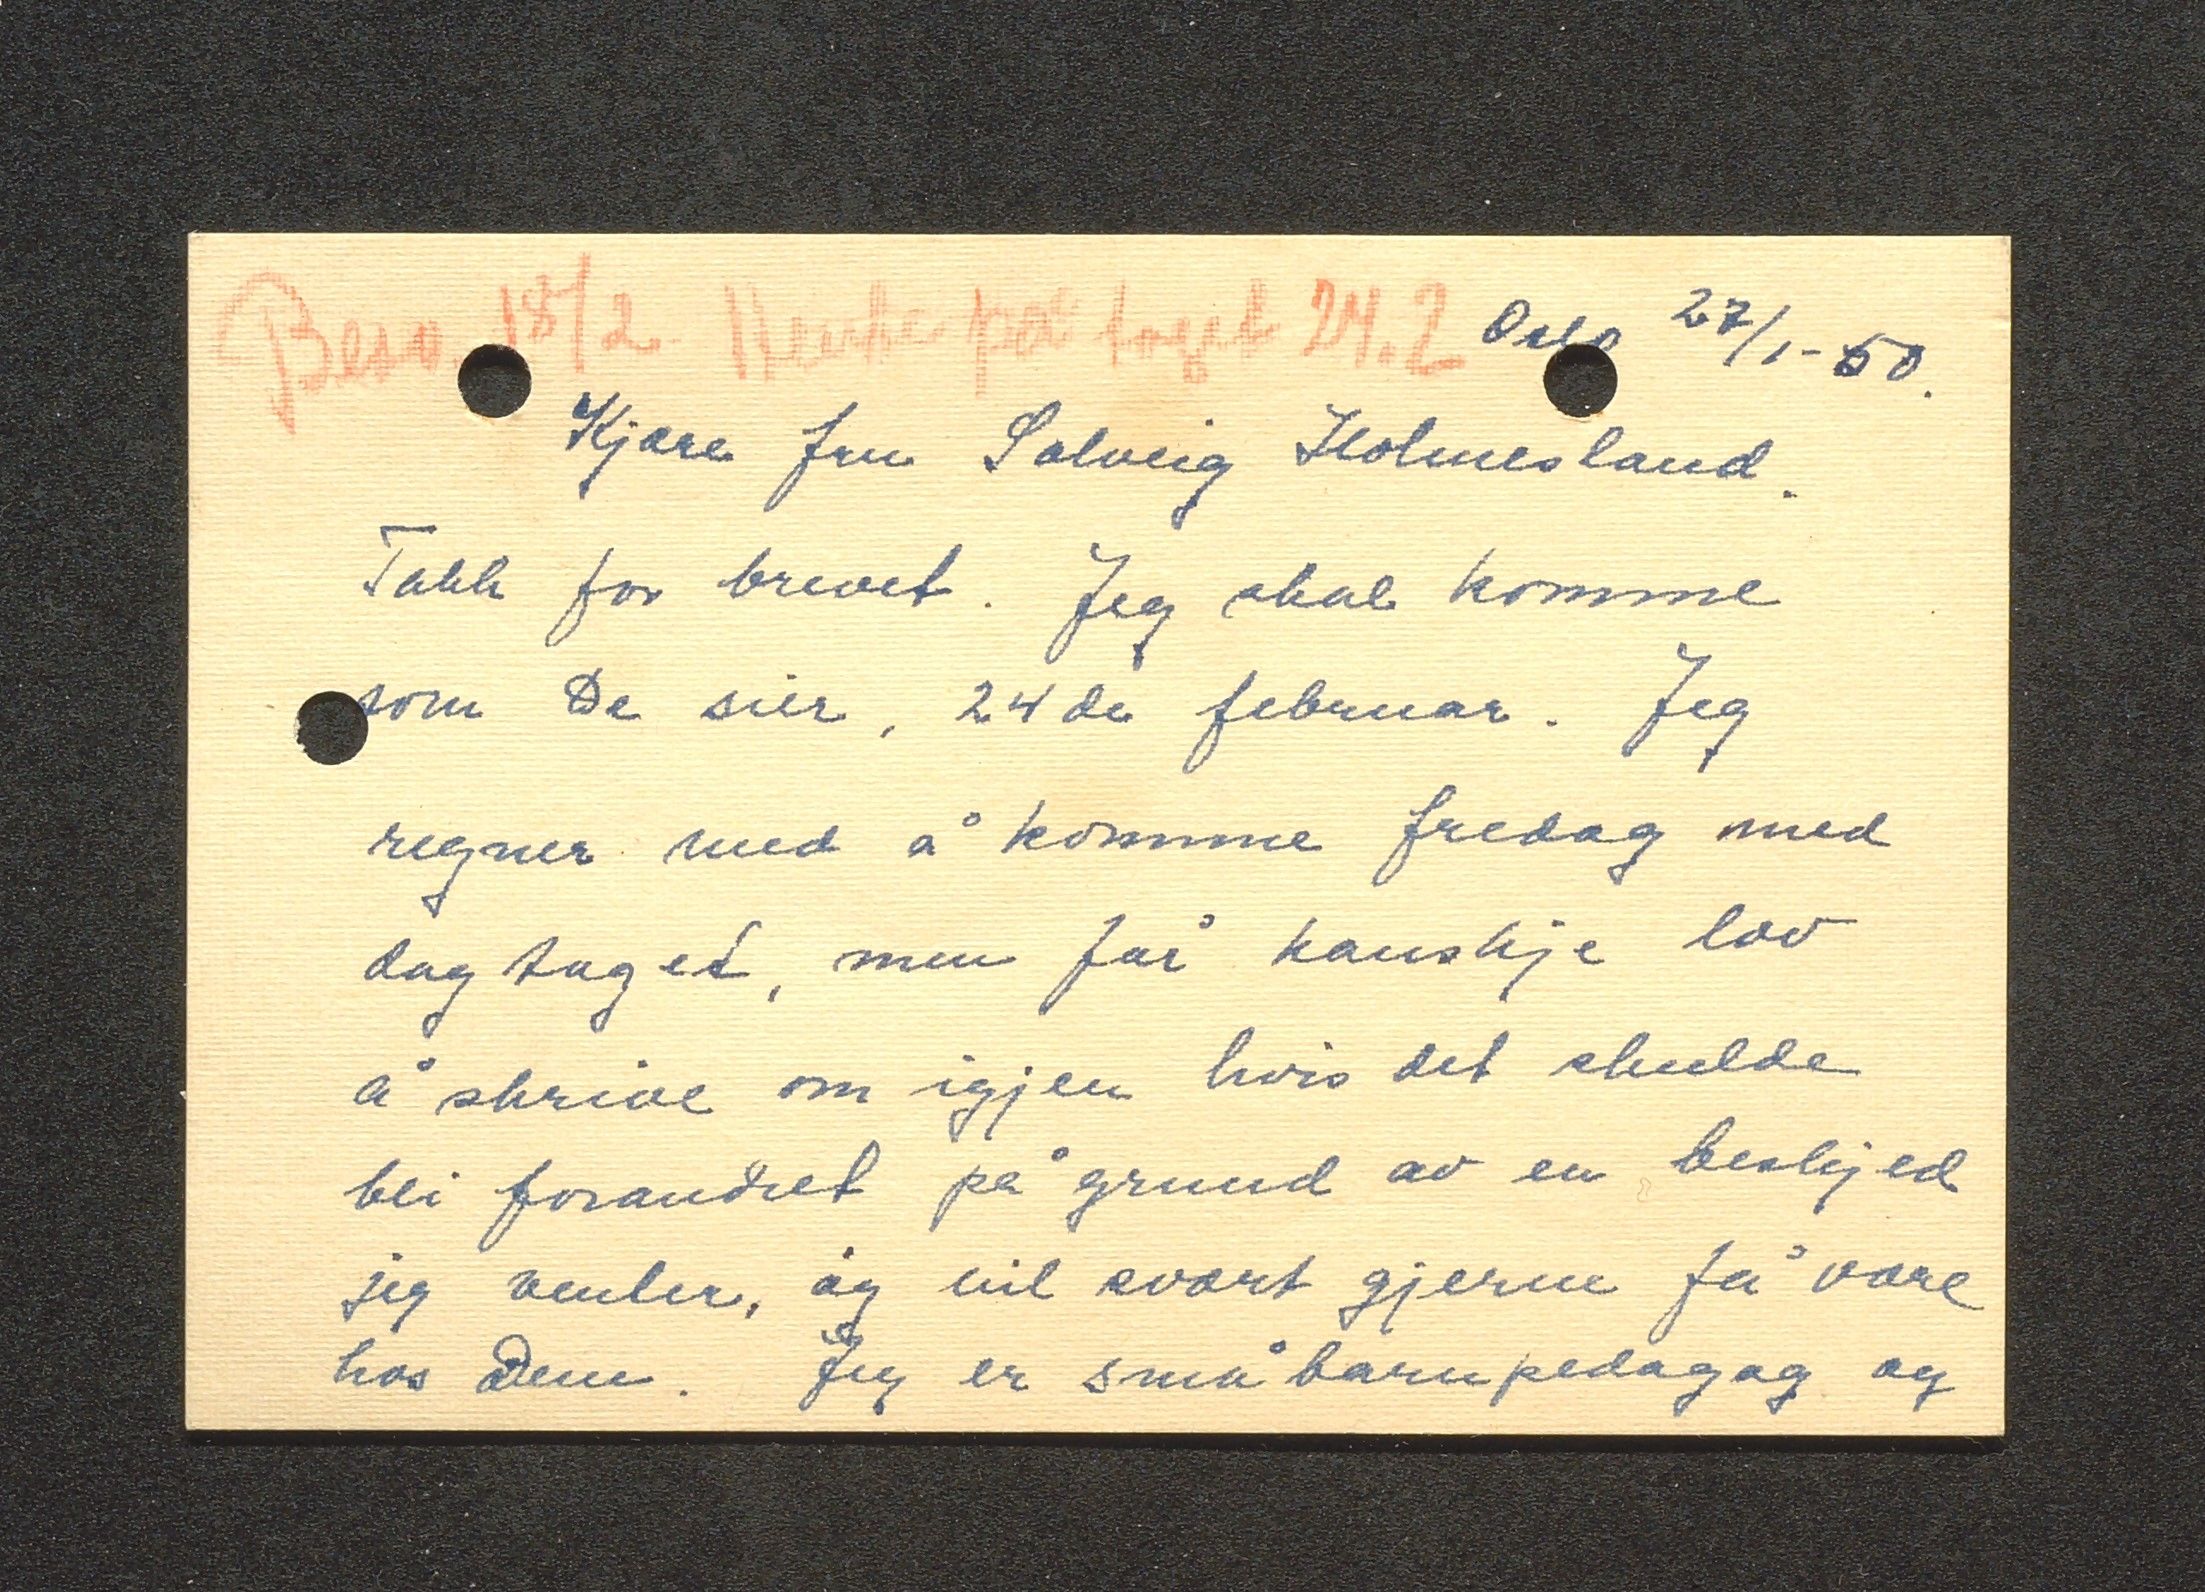 Besv. 18/2. Hente på toget 24.2
Oslo 27/1-50.
Kjære fru Solveig Holmesland.
Takk for brevet. Jeg skal komme
som De sier, 24de februar. Jeg
regner med å komme fredag med
dagtoget, men får kanskje lov
å skrive om igjen hvis det skulde
bli forandret på grund av en beskjed
jeg venter, og vil svært gjerne få være
hos Dem. Jeg er småbarnpedagog og